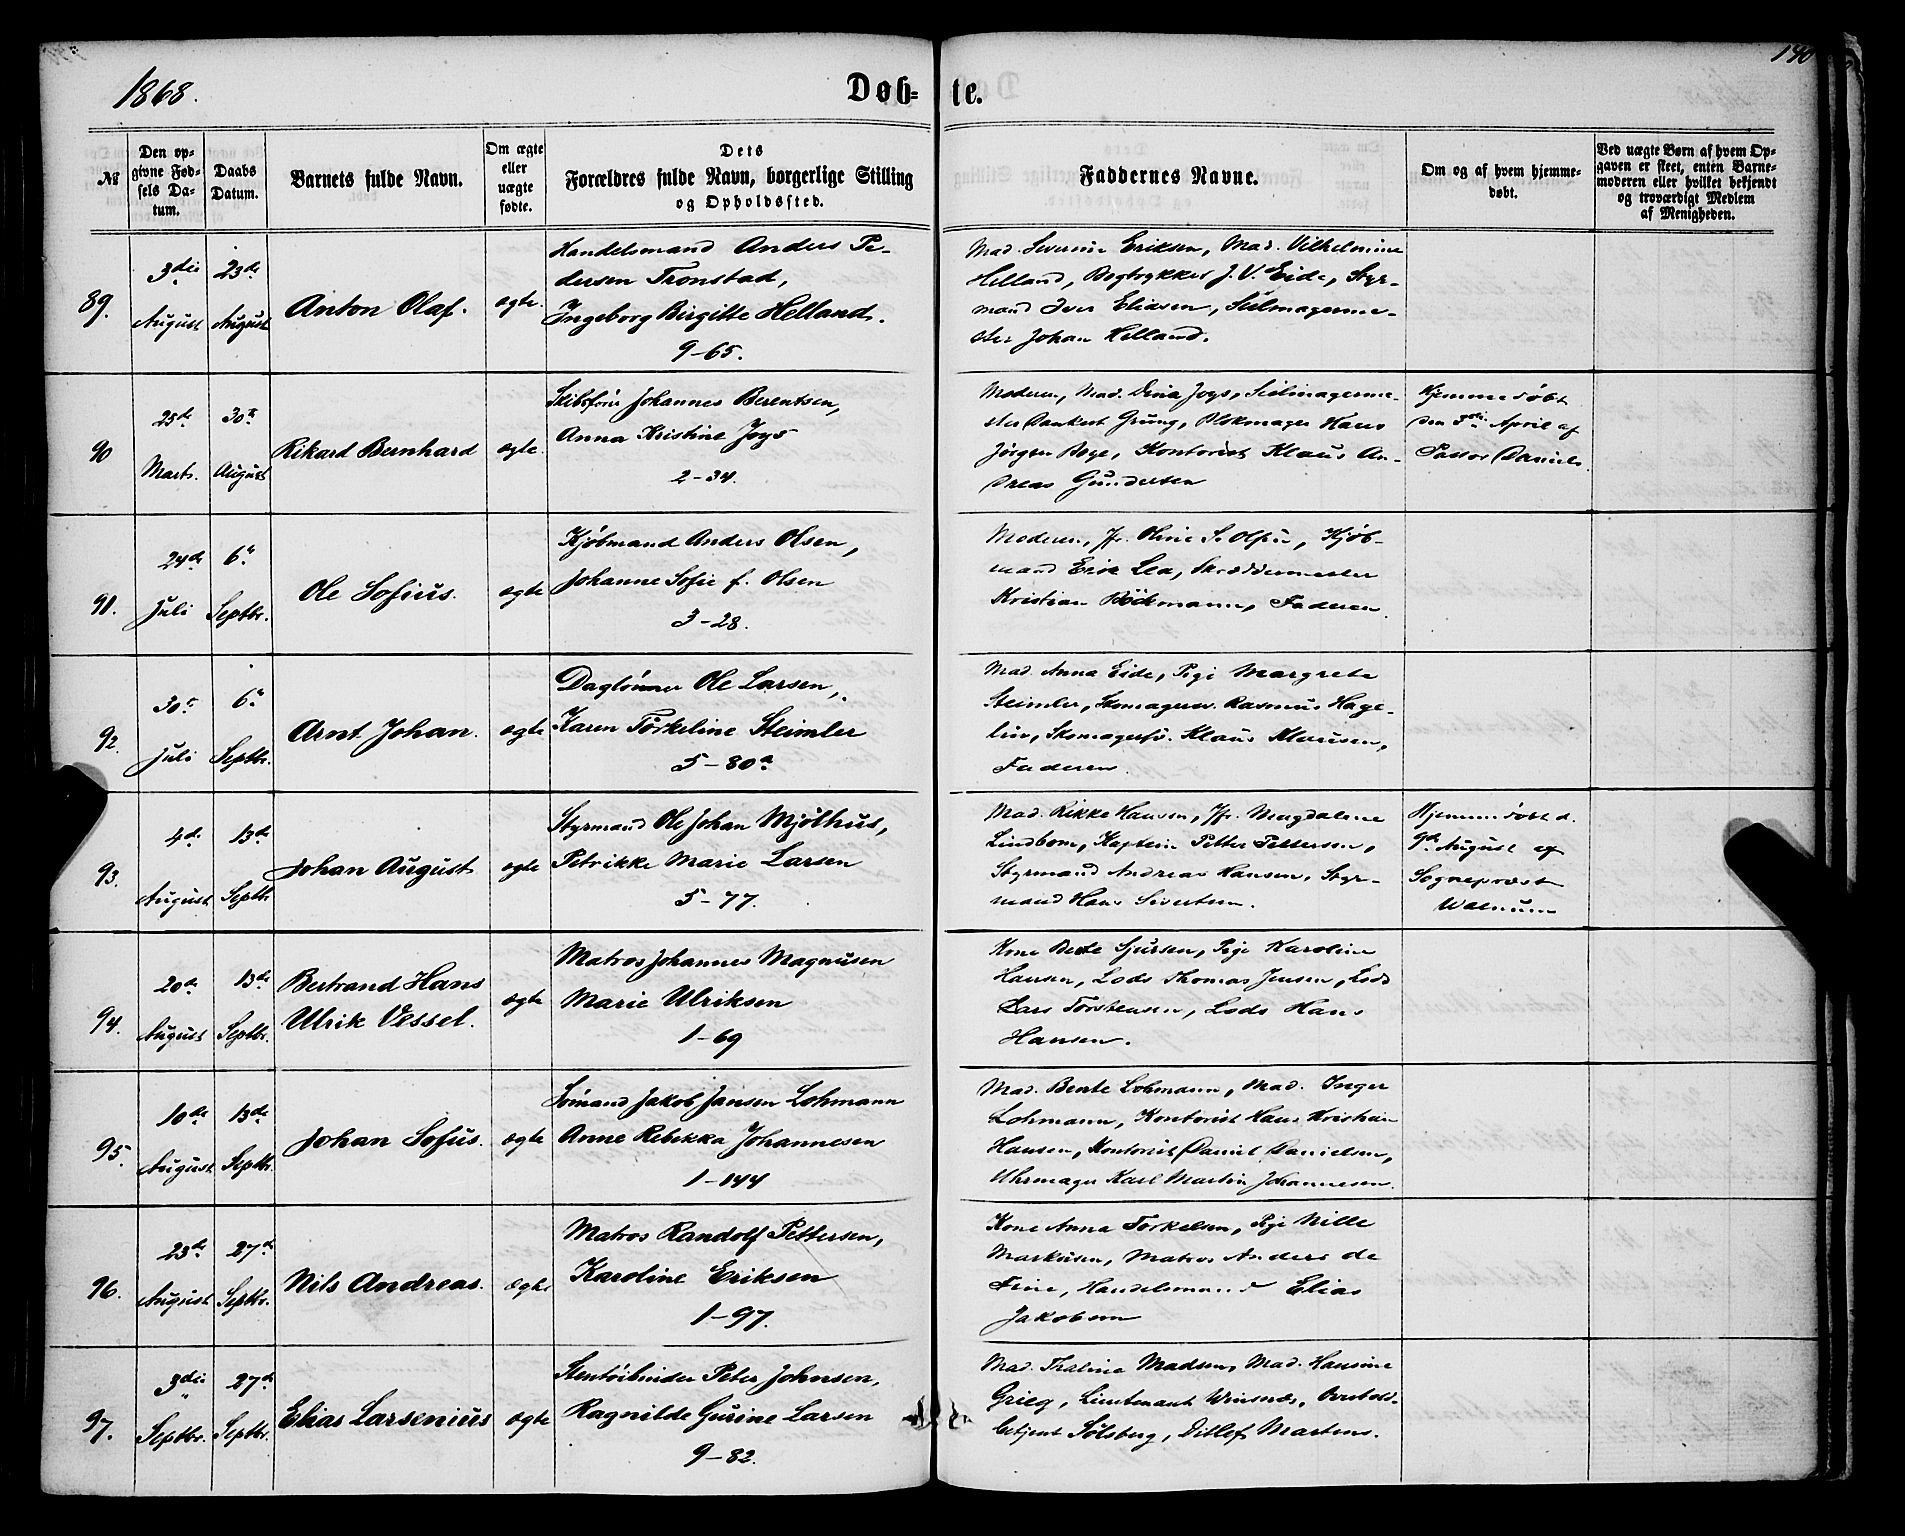 140
1868.
Døb-te.
№
Den op-
givne Fød-
sels Da-
tum.
Daabs
Datum.
Barnets fulde Navn.
Om ægte
eller
uægte
fødte.
Dets
Forældres fulde Navn, borgerlige Stilling
og Opholdssted.
Faddernes Navne.
Om og af hvem hjemme-
døbt.
Ved uægte Børn af hvem Op-
gaven er skeet, enten Barne-
moderen eller hvilket bekjendt
og troværdigt Medlem
af Menigheden.
89.
3die
August
23de
August
Anton Olaf.
ægte.
Handelsmand Anders Pe-
dersen Tronstad,
Ingeborg Birgitte Helland.
9-65.
Mad. Severine Eriksen, Mad. Vilhelmine
Helland, Bogtrykker J. V. Eide, Styr-
mand Iver Eliasen, Seilmagerme-
ster Johan Helland.
90
25de
Marts.
30te
August
Rikard Bernhard
ægte
Skibsfører Johannes Berentsen,
Anna Kristine Joys
2-34.
Moderen, Mad. Dina Joys, Seilmagerme-
ster Dankert Grung, Blokmager Hans
Jørgen Bøge, Kontorist Klaus An-
dreas Gundersen
Hjemmedøbt
den April af
Pastor Daniels.
91.
24de
Juli
6te
Septbr.
Ole Sofius.
ægte
Kjøbmand Anders Olsen,
Johanne Sofie f. Olsen
3-28.
Moderen, Jfr. Oline S. Olsen, Kjøb-
mand Erik Lea, Skræddermester
Kristian Böckmann, Faderen.
92.
30te
Juli
6te
Septbr.
Arnt Johan.
ægte
Daglønner Ole Larsen,
Karen Törkeline Steimler
5-80a
Mad. Anna Eide, Pige Margrete
Steimler, Skomagersv. Rasmus Hage-
lin, Skomagersv. Klaus Klausen,
Faderen.
93.
4de
August
13de
Septbr
Johan August
ægte
Styrmand Ole Johan Mjølhus,
Petrikke Marie Larsen
5-77.
Mad. Rikke Hansen, Jfr. Magdalene
Lindbom, Kaptein Petter Pettersen,
Styrmand Andreas Hansen, Styr-
mand Hans Sivertsen.
Hjemmedøbt d.
9de August af
Sogneprest
Walnum
94.
20de
August
13de
Septbr.
Bertrand Hans
Ulrik Vessel.
ægte
Matros Johannes Magnusen
Marie Ulriksen
1-69
Kone Berte Sjursen, Pige Karoline
Hansen, Lods Thomas Jensen, Lods
Lars Torstensen, Lods Hans
Hansen.
95.
10de
August
13de
Septbr.
Johan Sofus.
ægte
Sömand Jakob Jansen Lohmann
Anne Rebekka Johannesen
1-144
Mad. Bente Lohmann, Mad. Inger
Lohmann, Kontorist Hans Kristian
Hansen, Kontorist Daniel Danielsen,
Uhrmager Karl Martin Johannesen.
96.
23de
August
27de
Septbr.
Nils Andreas.
ægte
Matros Randolf Pettersen,
Karoline Eriksen
1-97.
Kone Anna Torkelsen, Pige Nille
Markusen, Matros Anders de
Fine, Handelsmand Elias
Jakobsen
97.
3die
Septbr.
27de
Septbr.
Elias Larsenius
ægte
Stentöibinder Peter Johnsen,
Ragnilde Gurine Larsen
9-82.
Mad. Thaline Madsen, Mad. Hansine
Grieg, Lieutenant Winsnæs,
betjent Solsberg, Ditlef Martens.